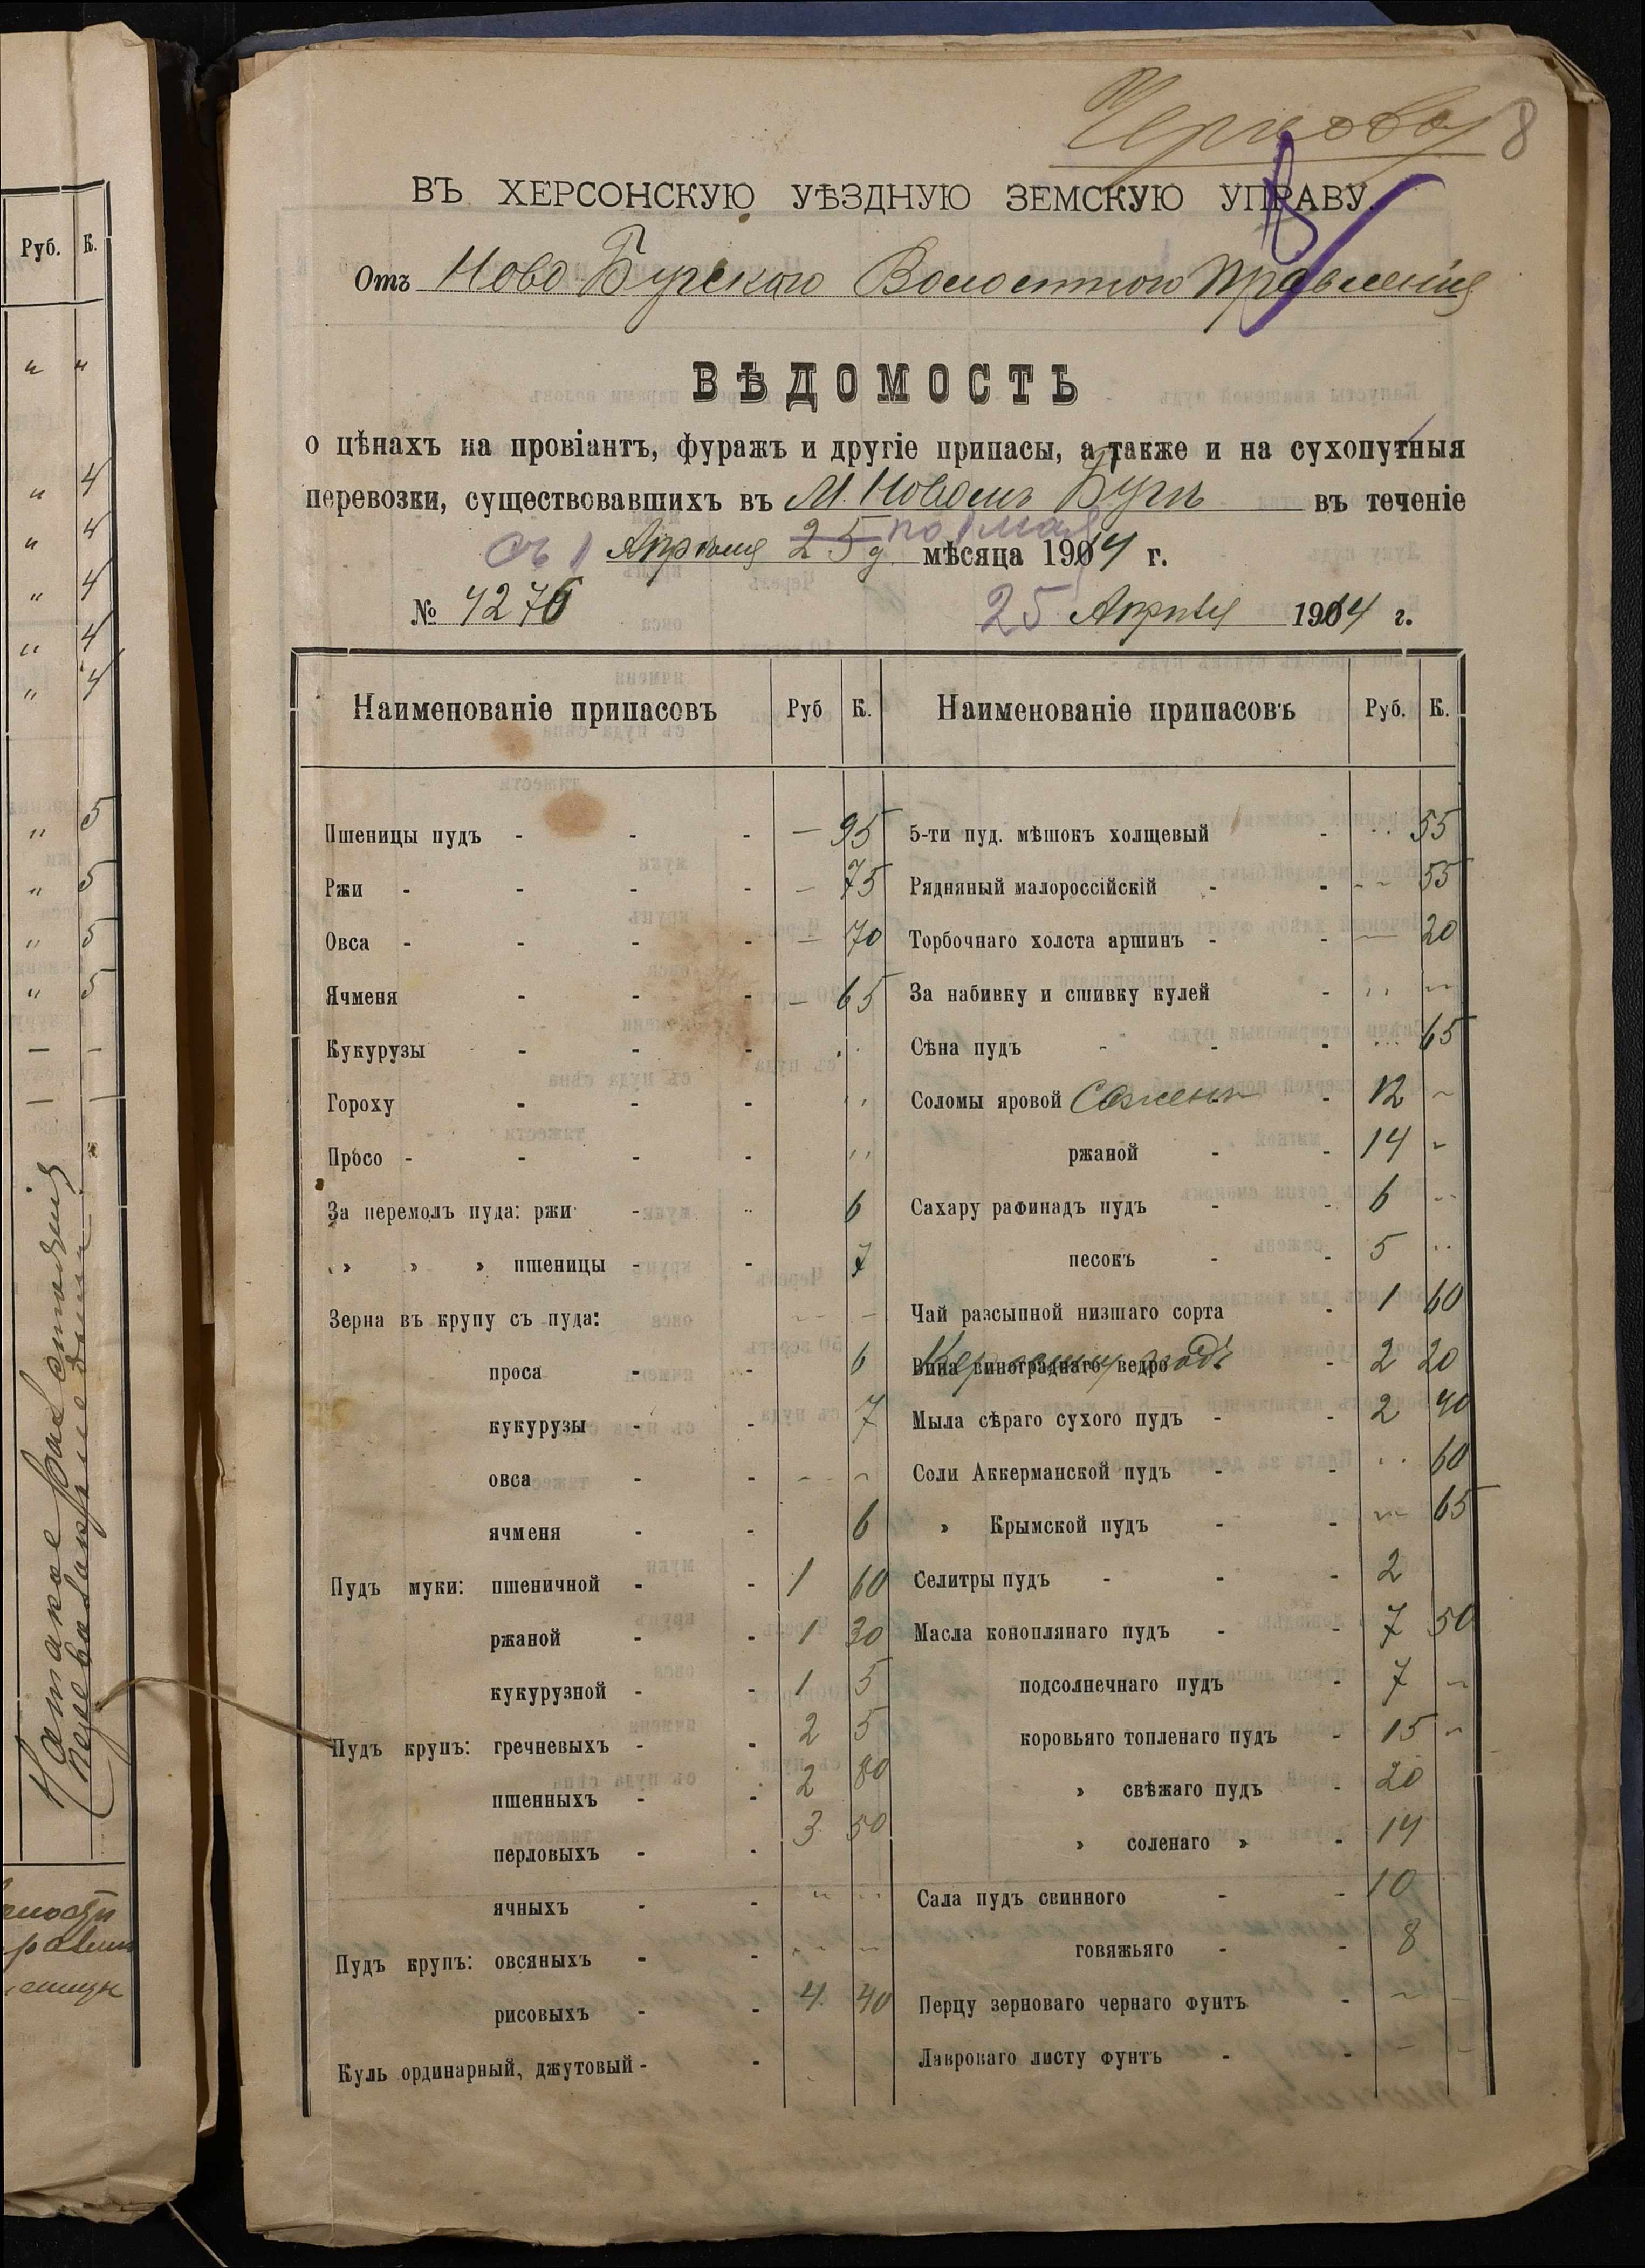 8
ВЪ ХЕРСОНСКУЮ УѢЗДНУЮ ЗЕМСКУЮ УПРАВУ.
Отъ Ново Бугского Волостного Правленія
ВѢДОМОСТЬ
о цѣнахъ на провіантъ, фуражъ и другіе припасы, а также и на сухопутныя
перевозки, существовавшихъ въ М. Новомъ Бугѣ въ теченіе
съ 1 Апрѣля 25 д. по 1 мая мѣсяца 1914 г.
№ 4276 25 Апрѣля 1914 г.
Наименованіе припасовъ Руб К. Наименованіе припасовъ Руб. К.
Пшеницы пудъ - - - — 95 5-ти пуд. мѣшокъ холщевый - 55
Ржи - - - - — 75 Рядняный малороссійскій - - 55
Овса - - - - — 70 Торбочнаго холста аршинъ - - — 20
Ячменя - - - — 65 За набивку и сшивку кулей - " —
Кукурузы - - - " Сѣна пудъ - - - 65
Гороху - - - " Соломы яровой Сажень - 12 —
Просо - - - - " ржаной - - 14 -
За перемолъ пуда: ржи - 6 Сахару рафинадъ пудъ - - 6 "
» » » пшеницы - - 7 песокъ - - 5 "
Зерна въ крупу съ пуда: — — Чай разсыпной низшаго сорта - 1 60
проса - - 6 Вина винограднаго ведро - 2 20
кукурузы - - 7 Мыла сѣраго сухого пудъ - - 2 40
овса - - — — Соли Аккерманской пудъ - - " 60
ячменя - - 6 » Крымской пудъ - - — 65
Пудъ муки: пшеничной - - 1 60 Селитры пудъ - - - 2
ржаной - - 1 30 Масла коноплянаго пудъ - - 7 50
кукурузной - - 1 5 подсолнечнаго пудъ - 7 —
Пудъ крупъ: гречневыхъ - - 2 5 коровьяго топленаго пудъ - 15 —
пшенныхъ - - 2 80 » свѣжаго пудъ - 20
перловыхъ - - 3 50 » соленаго » - 14
ячныхъ - - " " Сала пудъ свинного - - 10
Пудъ крупъ: овсяныхъ - - — — говяжьяго - - 8
рисовыхъ - - 4 40 Перцу зерноваго чернаго фунтъ - — -
Куль ординарный, джутовый - - Лавроваго листу фунтъ - - — —
Руб. К.
" "
" 4
" 4
" 4
" 4
" 4
" 5
" 5
" 5
" 5
— —
— —